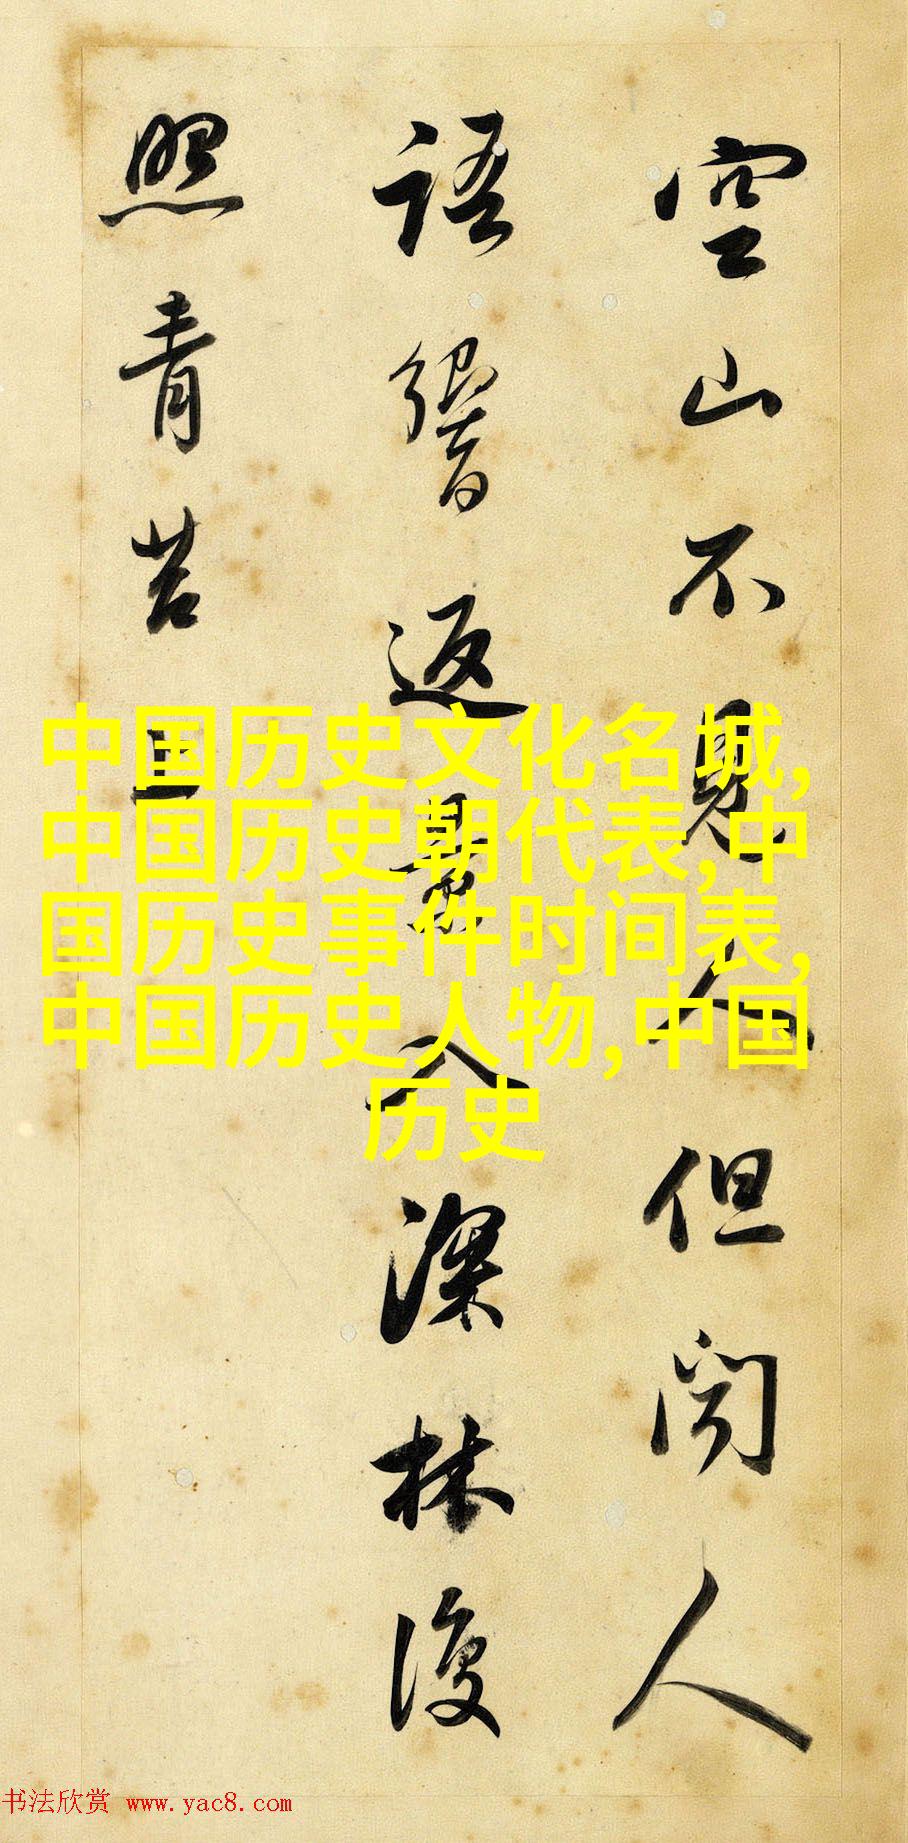 空山不見人但闻人
語響返景入深林復
照青苔上
中国历史文化名城,
中国历史朝代表,中
国历史事件时间表,
中国历史人物,中国
历史
书法欣赏 www.yac8.com